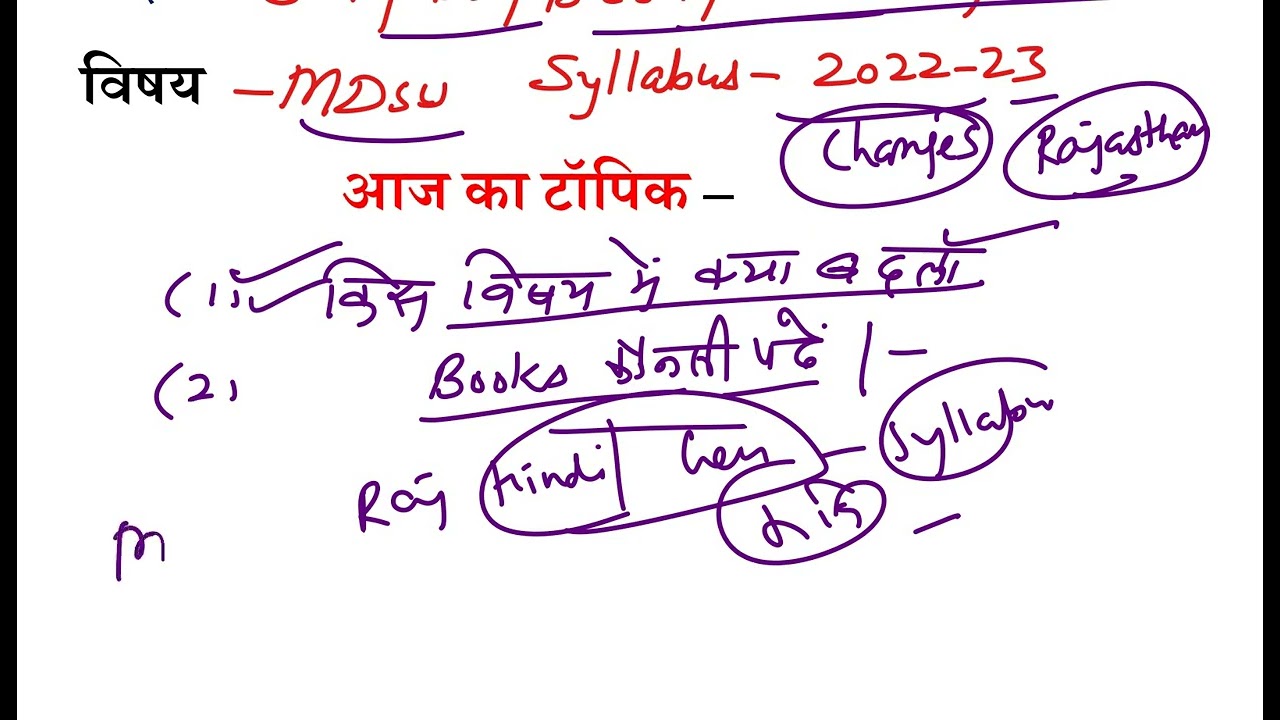 विषय – MDSU Syllabus – 2022-23
Changes Rajasthan
आज का टॉपिक –
(1) किस विषय में क्या बदला
(2) Books कौनसी पढें
Raj Hindi Syllabus
M